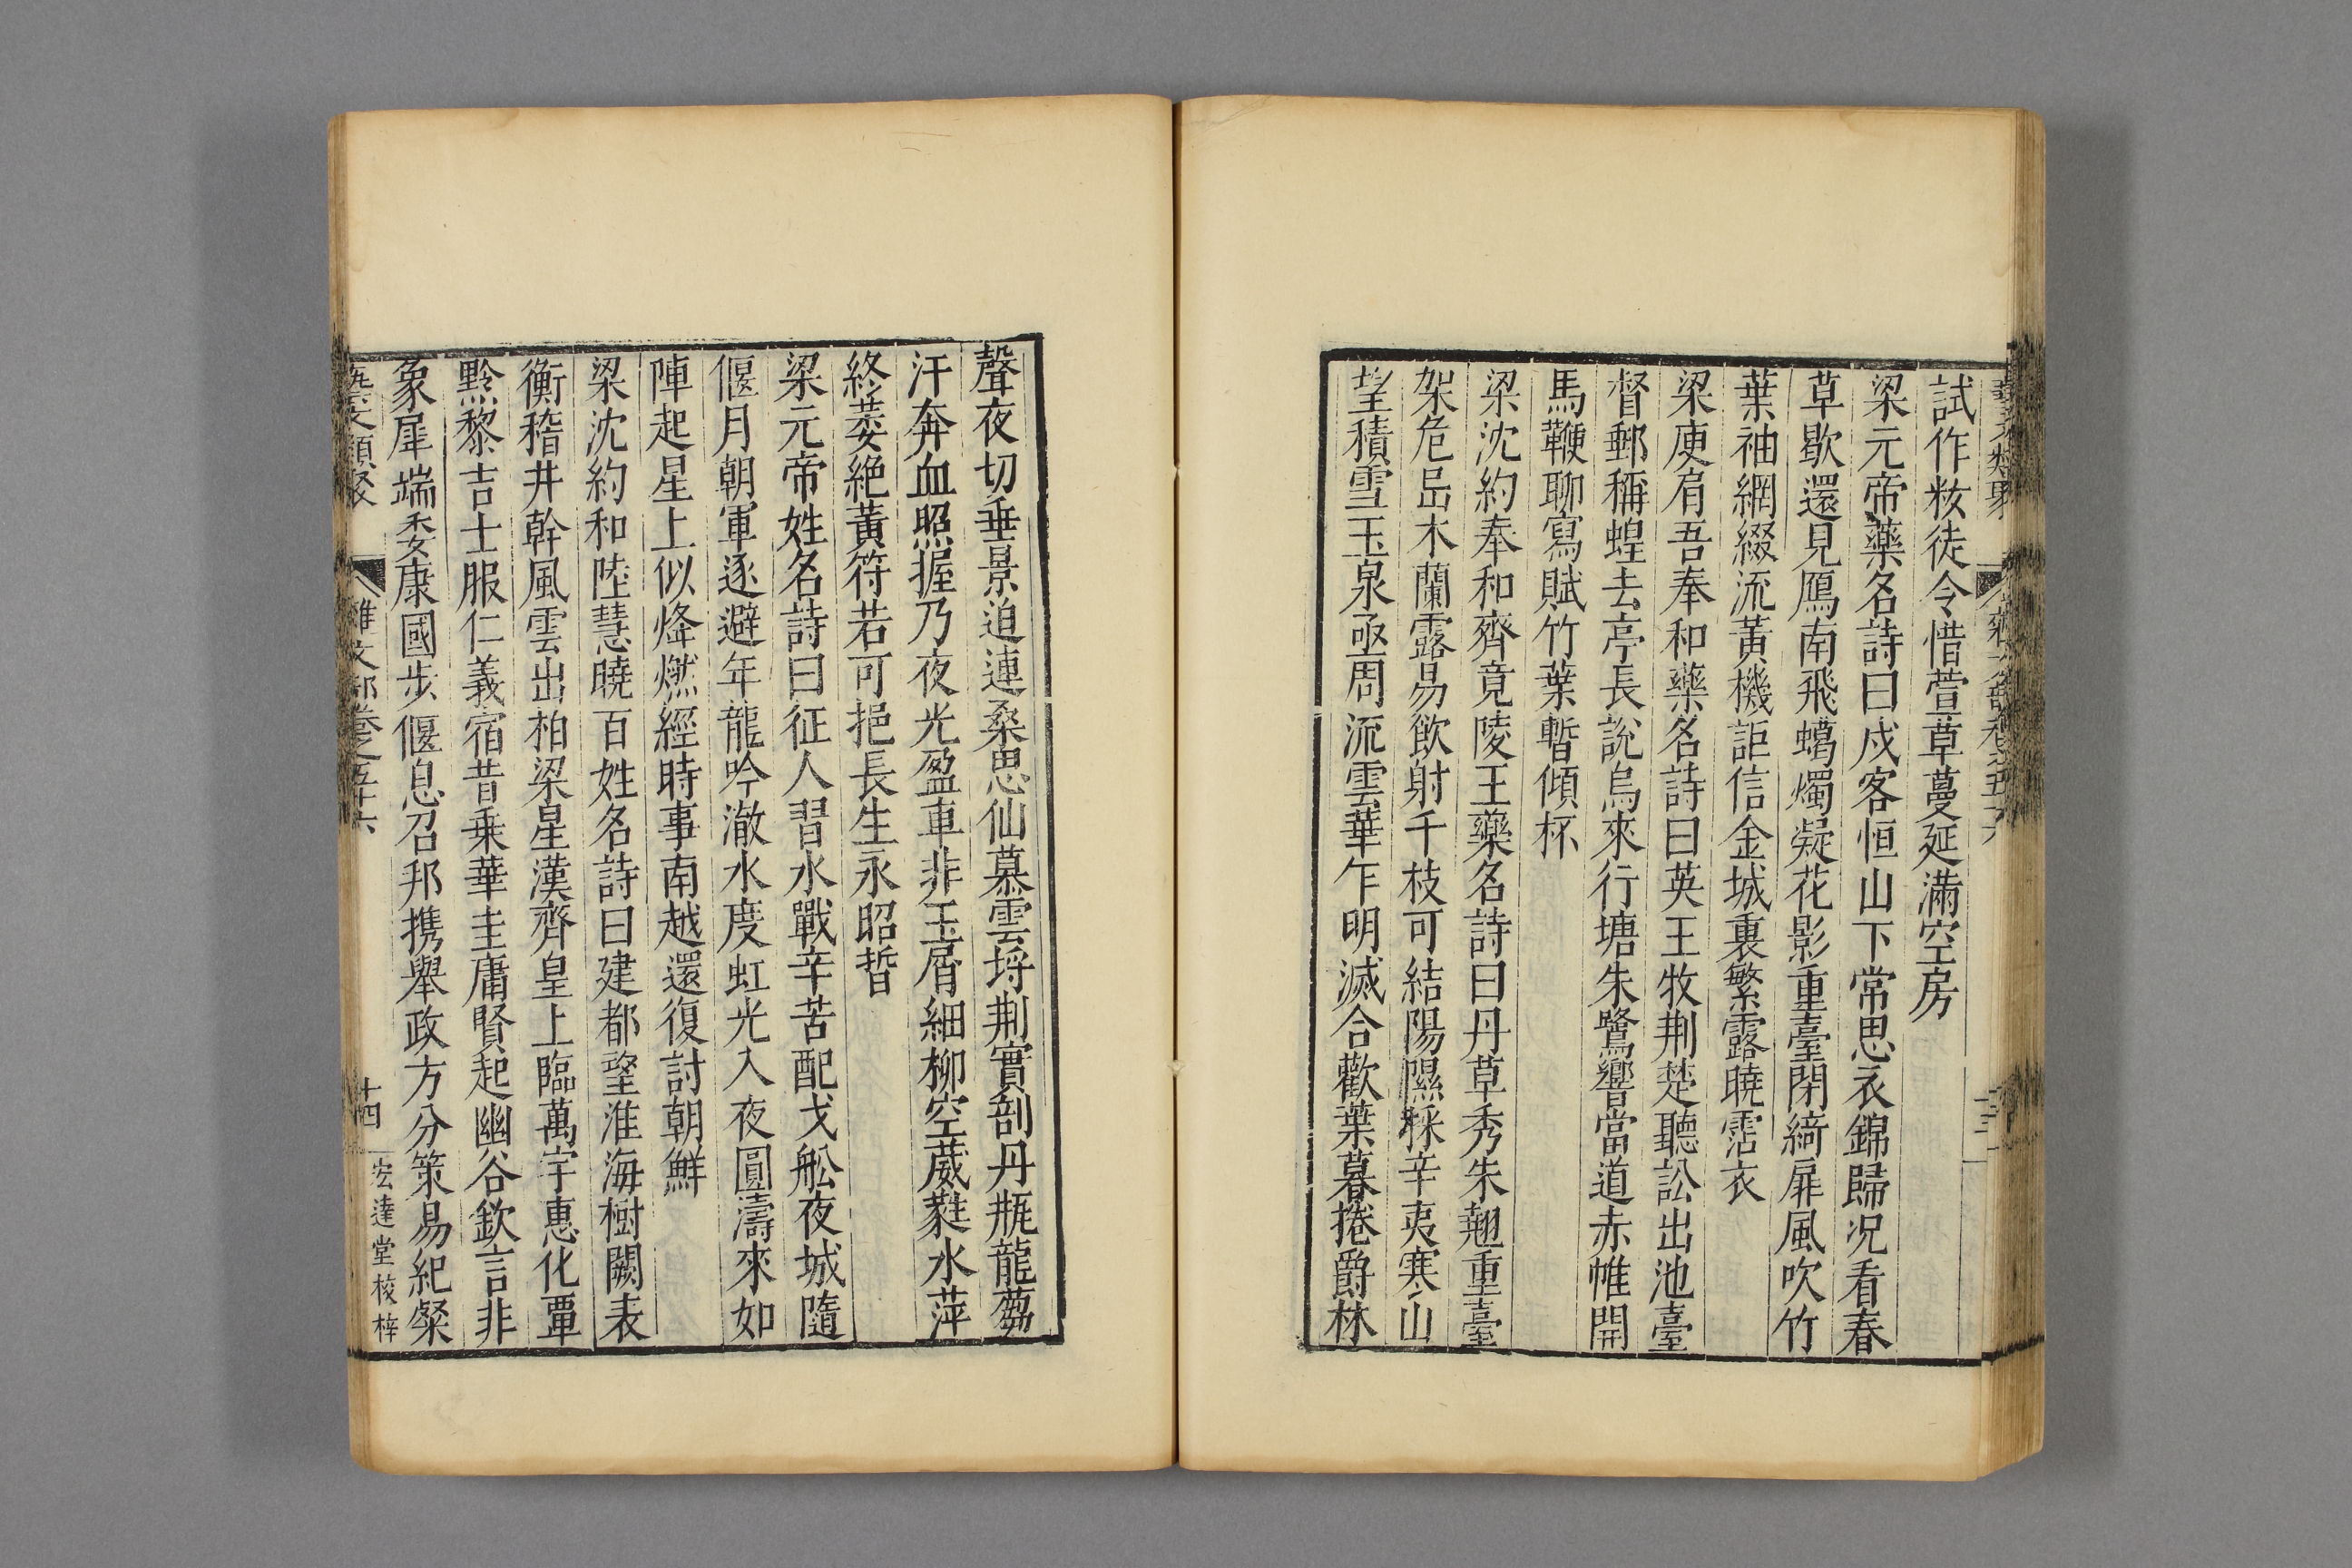 試作籹徒令惜萱草蔓延滿空房
梁元帝藥名詩曰戍客恒山下常思衣錦歸况看春
草歇還見鴈南飛蠟燭凝花影重臺閉綺扉風吹竹
葉袖網綴流黃機詎信金城裏繁露曉霑衣
梁庾肩吾奉和藥名詩曰英王牧荆楚聽訟出池臺
督郵稱蝗去亭長說烏來行塘朱鷺響當道赤帷開
馬鞭聊寫賦竹葉暫傾杯
梁沈約奉和齊竟陵王藥名詩曰丹草秀朱翹重臺
架危岊木蘭露易飲射千枝可結陽隰採辛夷寒山
望積雪玉泉亟周流雲華乍明滅合歡葉暮捲爵林
聲夜切垂景迫連桑思仙慕雲埒荆實剖丹瓶龍蒭
汗奔血照握乃夜光盈車非玉屑細柳空葳蕤水萍
終委絕黃符若可挹長生永昭晢
梁元帝姓名詩曰征人習水戰辛苦配戈舩夜城隨
偃月朝軍逐避年龍吟澈水度虹光入夜圓濤來如
陣起星上似烽燃經時事南越還復討朝鮮
梁沈約和陸慧曉百姓名詩曰建都望淮海樹闕表
衡稽井幹風雲出柏梁星漢齊皇上臨萬宇惠化覃
黔黎吉士服仁義宿昔乗華圭庸賢起幽谷欽言非
象犀端委康國步偃息召邦携舉政方分策易紀粲
藝文類聚 雜文部卷之五十六 十四 宏達堂校梓